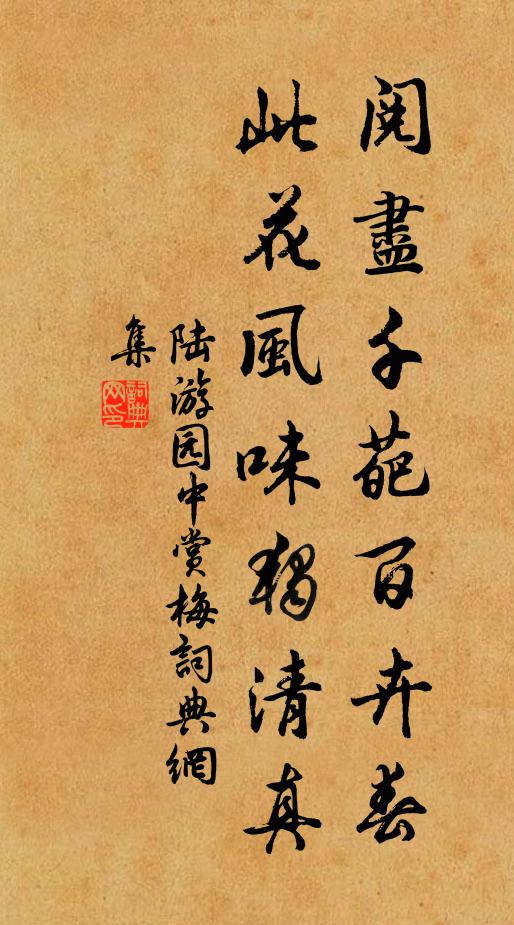 閱盡千葩百卉春
此花風味獨清真
陆游园中赏梅詞典網
集
詞典網印